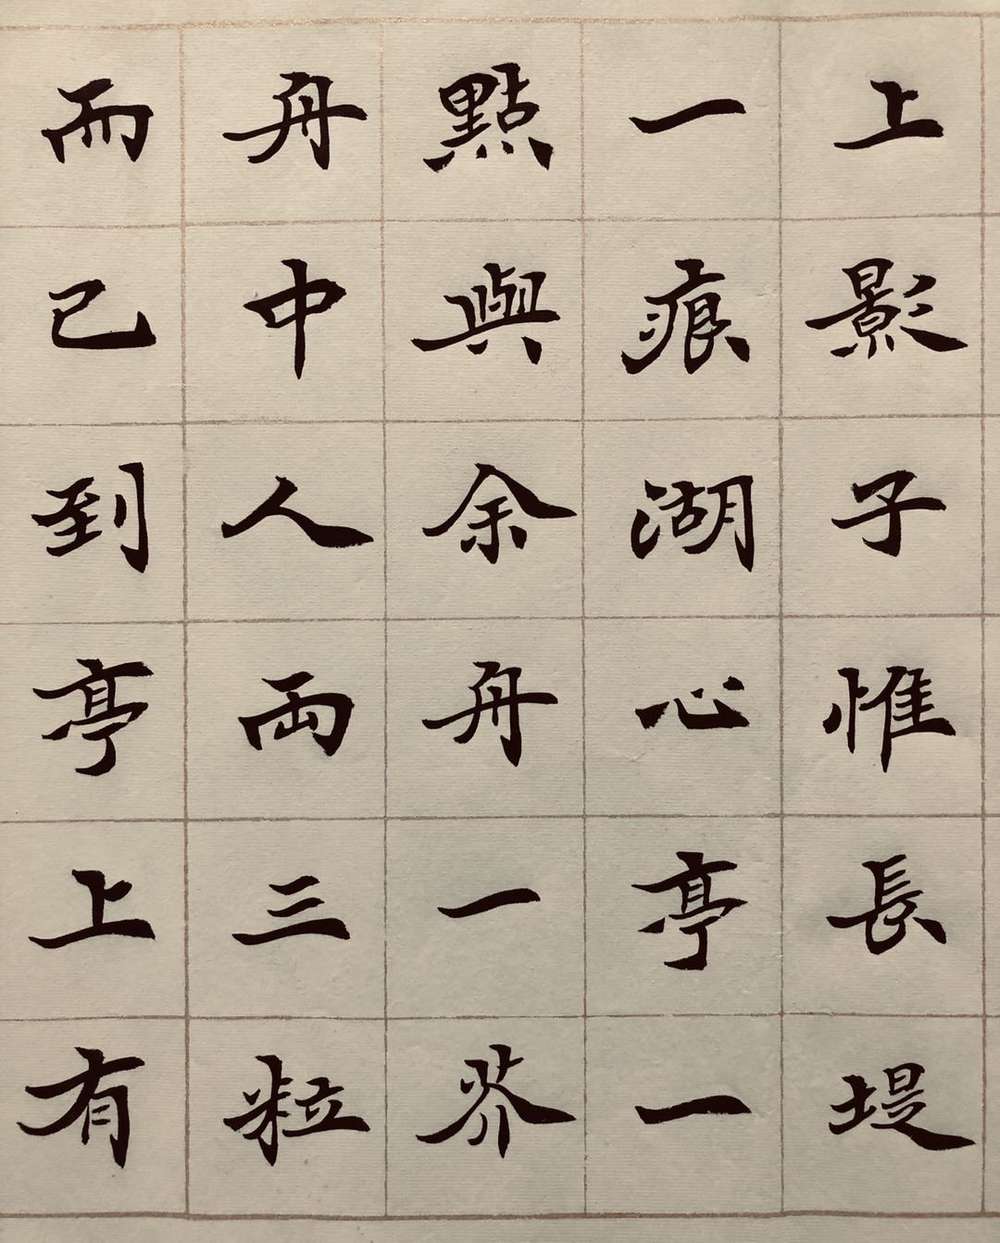 上影子惟長堤
一痕湖心亭一
點與余舟一芥
舟中人兩三粒
而已到亭上有